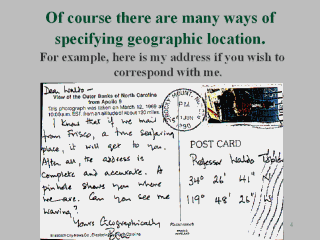 Of course there are many ways of
specifying geographic location.
For example, here is my address if you wish to
correspond with me.
Dear Waldo —
View of the Outer Banks of North Carolina
from Apollo 9
This photograph was taken on March 12, 1969
10:08a.m. EST. from an altitude of about 120 miles.
I know that if we mail
from Frisco, a time seafaring
place, it will get to you.
After all, the address is
complete and accurate. A
pinhole shows you where
we are. Can you see me
waving?
Yours Geographically
POST CARD
Professor Waldo Tobler
34° 26' 41"
119° 48' 26"
4